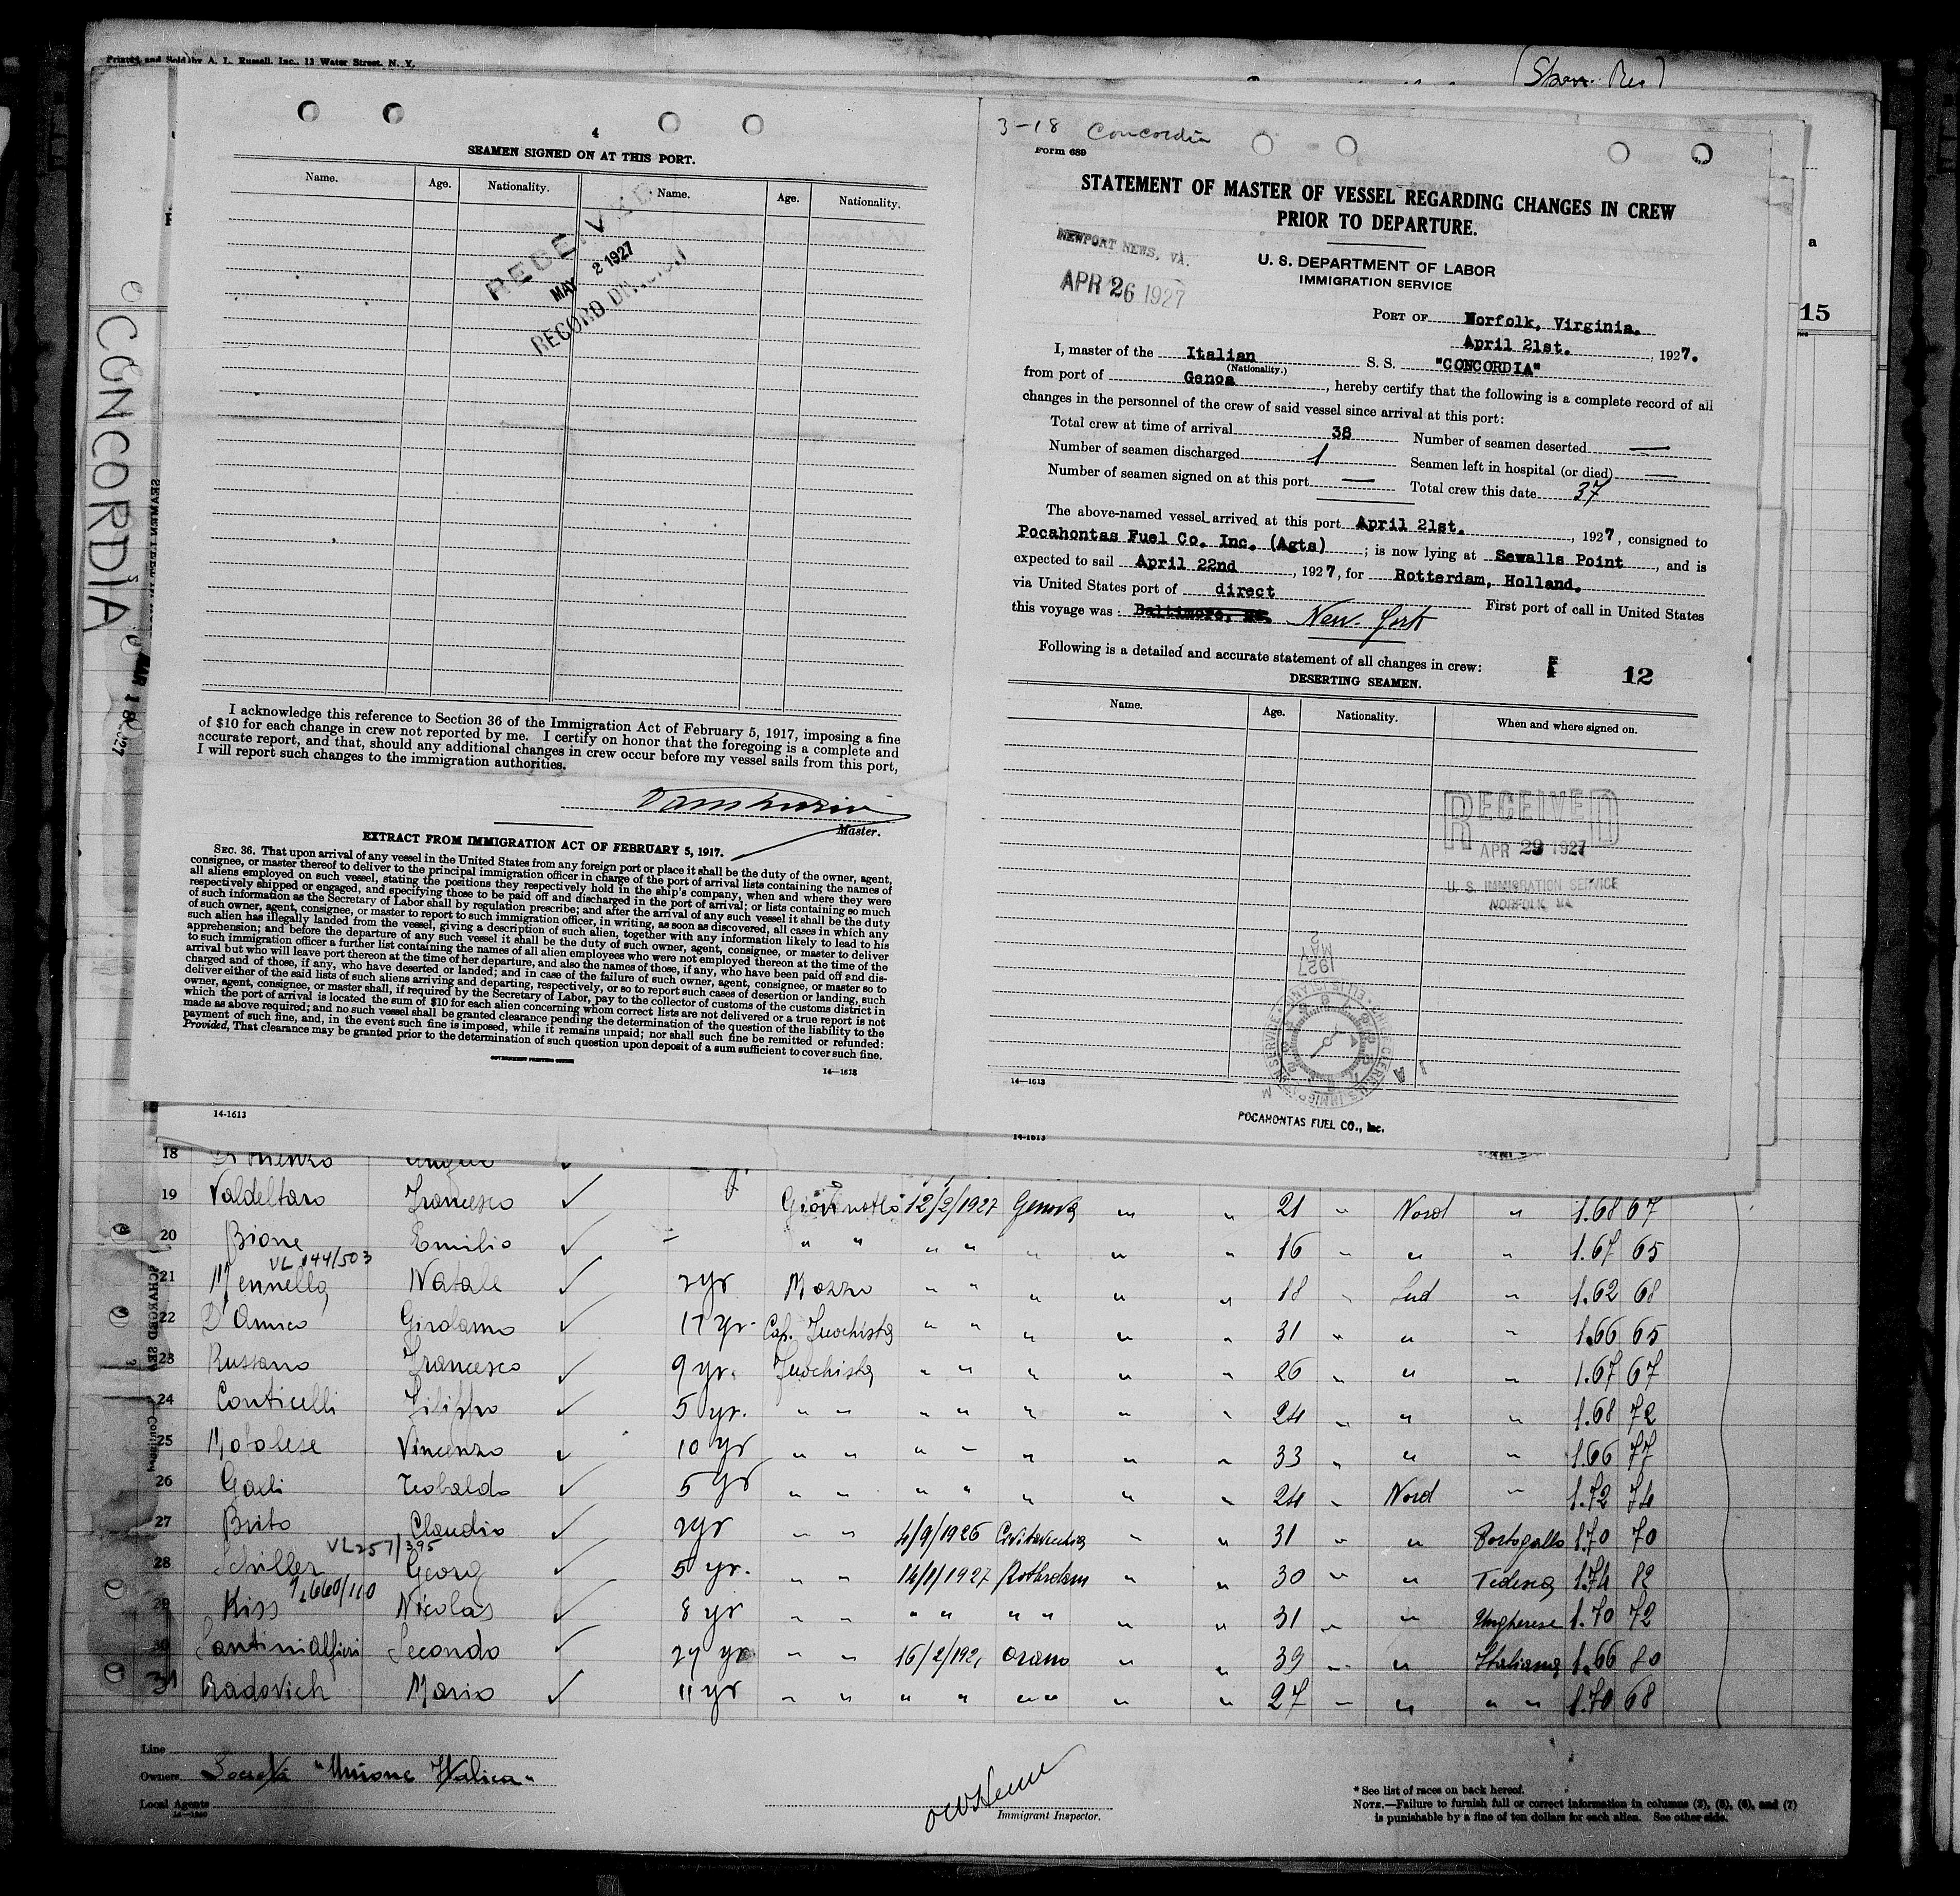 Printed and Sold by A. L. Russell, Inc., 13 Water Street, N. Y.
4
SEAMEN SIGNED ON AT THIS PORT.
Name. Age. Nationality. Name. Age. Nationality.
RECEIVED
MAY 2 1927
RECORD DIVISION
I acknowledge this reference to Section 36 of the Immigration Act of February 5, 1917, imposing a fine
of $10 for each change in crew not reported by me. I certify on honor that the foregoing is a complete and
accurate report, and that, should any additional changes in crew occur before my vessel sails from this port,
I will report such changes to the immigration authorities.
Master.
EXTRACT FROM IMMIGRATION ACT OF FEBRUARY 5, 1917.
SEC. 36. That upon arrival of any vessel in the United States from any foreign port or place it shall be the duty of the owner, agent,
consignee, or master thereof to deliver to the principal immigration officer in charge of the port of arrival lists containing the names of
all aliens employed on such vessel, stating the positions they respectively hold in the ship's company, when and where they were
respectively shipped or engaged, and specifying those to be paid off and discharged in the port of arrival; or lists containing so much
of such information as the Secretary of Labor shall by regulation prescribe; and after the arrival of any such vessel it shall be the duty
of such owner, agent, consignee, or master to report to such immigration officer, in writing, as soon as discovered, all cases in which any
such alien has illegally landed from the vessel, giving a description of such alien, together with any information likely to lead to his
apprehension; and before the departure of any such vessel it shall be the duty of such owner, agent, consignee, or master to deliver
to such immigration officer a further list containing the names of all alien employees who were not employed thereon at the time of the
arrival but who will leave port thereon at the time of her departure, and also the names of those, if any, who have been paid off and dis-
charged and of those, if any, who have deserted or landed; and in case of the failure of such owner, agent, consignee, or master so to
deliver either of the said lists of such aliens arriving and departing, respectively, or so to report such cases of desertion or landing, such
owner, agent, consignee, or master shall, if required by the Secretary of Labor, pay to the collector of customs of the customs district in
which the port of arrival is located the sum of $10 for each alien concerning whom correct lists are not delivered or a true report is not
made as above required; and no such vessel shall be granted clearance pending the determination of the question of the liability to the
payment of such fine, and, in the event such fine is imposed, while it remains unpaid; nor shall such fine be remitted or refunded:
Provided, That clearance may be granted prior to the determination of such question upon deposit of a sum sufficient to cover such fine.
GOVERNMENT PRINTING OFFICE
14—1613
14-1613
CONCORDIA
3-18 Concordia
Form 689
STATEMENT OF MASTER OF VESSEL REGARDING CHANGES IN CREW
PRIOR TO DEPARTURE.
NEWPORT NEWS, VA.
APR 26 1927
U. S. DEPARTMENT OF LABOR
IMMIGRATION SERVICE
PORT OF Norfolk, Virginia.
April 21st. , 1927.
I, master of the Italian S. S. "CONCORDIA"
(Nationality.)
from port of Genoa , hereby certify that the following is a complete record of all
changes in the personnel of the crew of said vessel since arrival at this port:
Total crew at time of arrival 38 Number of seamen deserted —
Number of seamen discharged 1 Seamen left in hospital (or died) —
Number of seamen signed on at this port — Total crew this date 37
The above-named vessel arrived at this port April 21st. , 1927, consigned to
Pocahontas Fuel Co. Inc. (Agts) ; is now lying at Sewalls Point , and is
expected to sail April 22nd , 1927, for Rotterdam, Holland.
via United States port of direct First port of call in United States
this voyage was: Baltimore, Md. New York
Following is a detailed and accurate statement of all changes in crew: 12
DESERTING SEAMEN.
Name. Age. Nationality. When and where signed on.
RECEIVED
APR 29 1927
U. S. IMMIGRATION SERVICE
NORFOLK, VA.
MAY 2
1927
14—1613
POCAHONTAS FUEL CO., Inc.
14-1613
15
18
19 Valdeltaro Francesco ✓ Giovanotto 12/2/1927 Genova " " 21 " Nord " 1.68 67
20 Bione Emilio ✓ — " " " " " " " 16 " " " 1.67 65
VL 144/503
21 Mennella Natale ✓ 2 yr Mozzo " " " " " 18 " Sud " 1.62 68
22 D'Amico Girolamo ✓ 17 yr. Cap. Fuochista " " " " " 31 " " " 1.66 65
23 Russano Francesco ✓ 9 yr. Fuochista " " " " " 26 " " " 1.67 67
24 Conticelli Filippo ✓ 5 yr. " " " " " " " 24 " " " 1.68 72
25 Vincenzo ✓ 10 yr " " " " " " " 33 " " " 1.66 77
26 Teobaldo ✓ 5 yr " " " " " " " 24 " Nord " 1.72 74
27 Brito Claudio ✓ 2yr " " 4/9/1926 Civitavecchia " " 31 " " Portogallo 1.70 70
VL257/395
28 Schiller Georg ✓ 5 yr. " " 14/1/1927 Rotterdam " " 30 " " Tedesca 1.74 82
29 Kiss Nicolas ✓ 8 yr " " " " " " 31 " " Ungherese 1.70 72
30 Santini Alfieri Secondo ✓ 24 yr " " 16/2/192 Orano " " 39 " " Italiana 1.66 80
31 Radovich Mario ✓ 11 yr " " " " " " " " 27 " " " " 1.70 68
Line
Owners Società "Unione Italica"
Local Agents
Immigrant Inspector.
* See list of races on back hereof.
NOTE.—Failure to furnish full or correct information in columns (3), (5), (6), and (7)
is punishable by a fine of ten dollars for each alien. See other side.